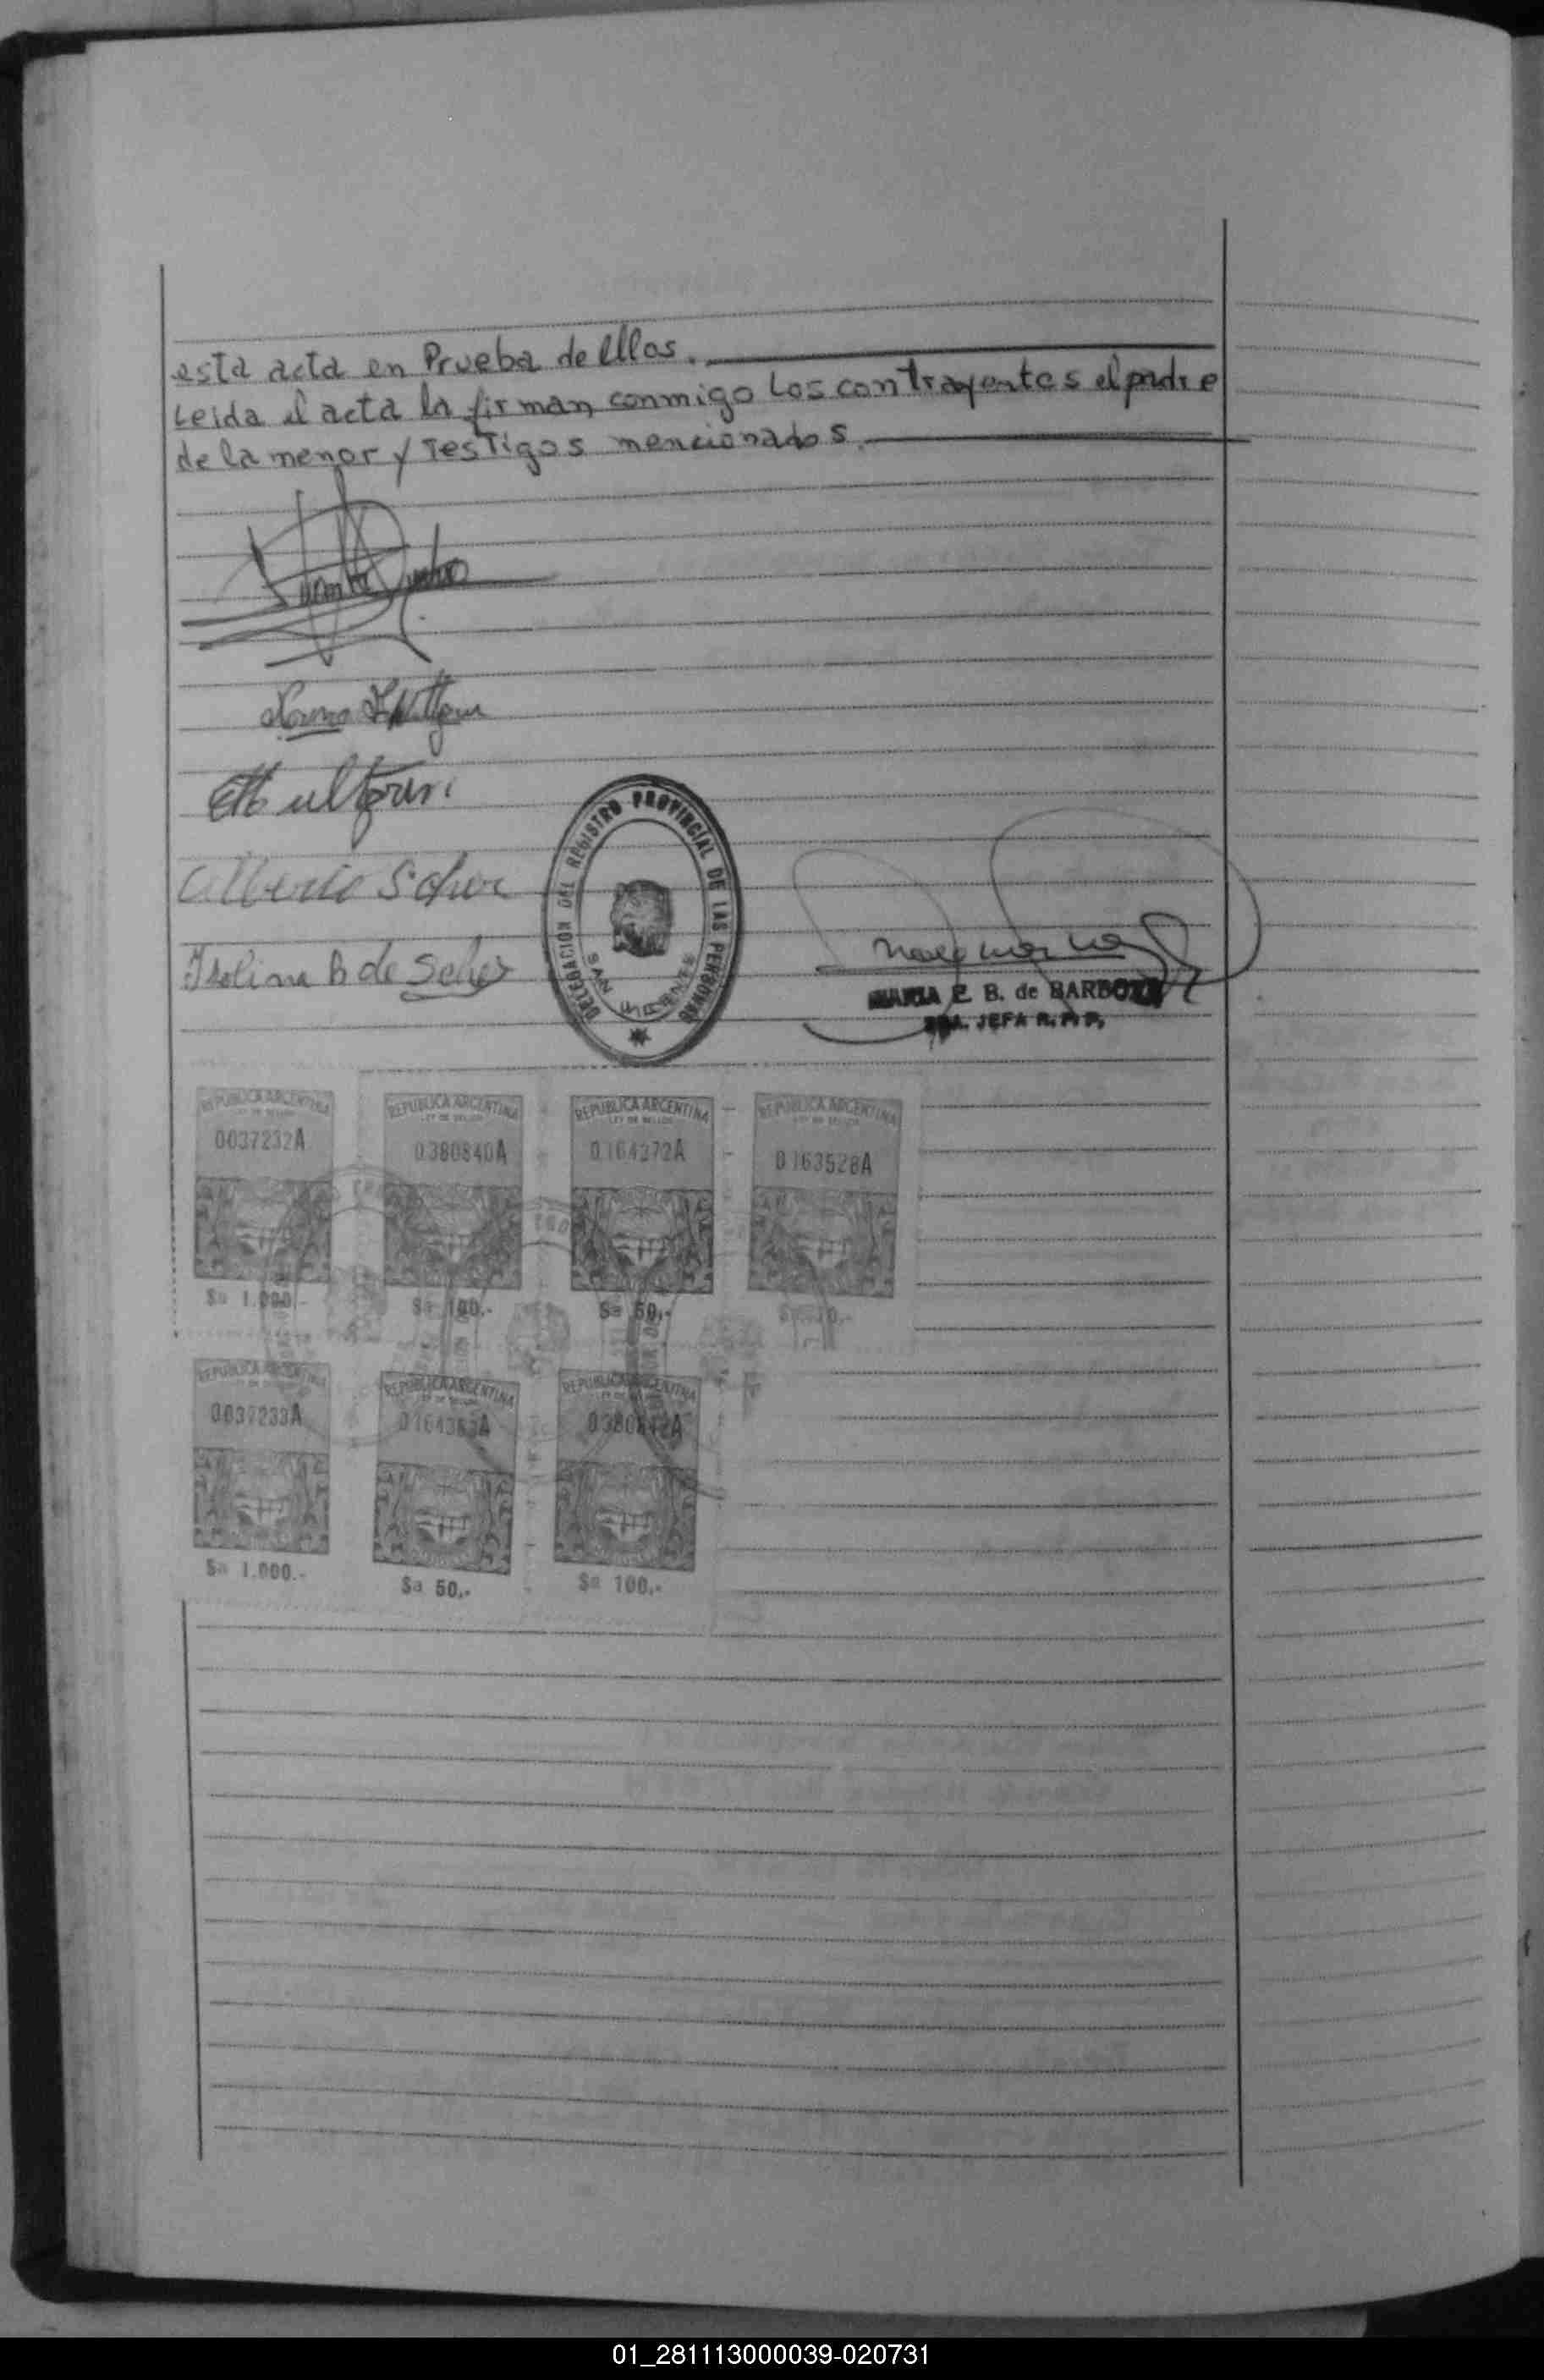 esta acta en Prueba de Ellos.
Leida el acta la firman conmigo Los contrayentes el padre
de la menor y Testigos mencionados.
Alberto Scher
Isolina B de Scher
DELEGACION DEL REGISTRO PROVINCIAL DE LAS PERSONAS
SAN VICENTE
MARIA E. B. de BARBOZA
JEFA R. P. P.
REPUBLICA ARGENTINA
LEY DE SELLOS
0037232A
$a 1.000.-
REPUBLICA ARGENTINA
LEY DE SELLOS
0380840A
$a 100.-
REPUBLICA ARGENTINA
LEY DE SELLOS
0164372A
$a 50.-
REPUBLICA ARGENTINA
LEY DE SELLOS
0163528A
REPUBLICA ARGENTINA
0037233A
$a 1.000.-
REPUBLICA ARGENTINA
$a 50.-
REPUBLICA ARGENTINA
$a 100.-
01_281113000039-020731